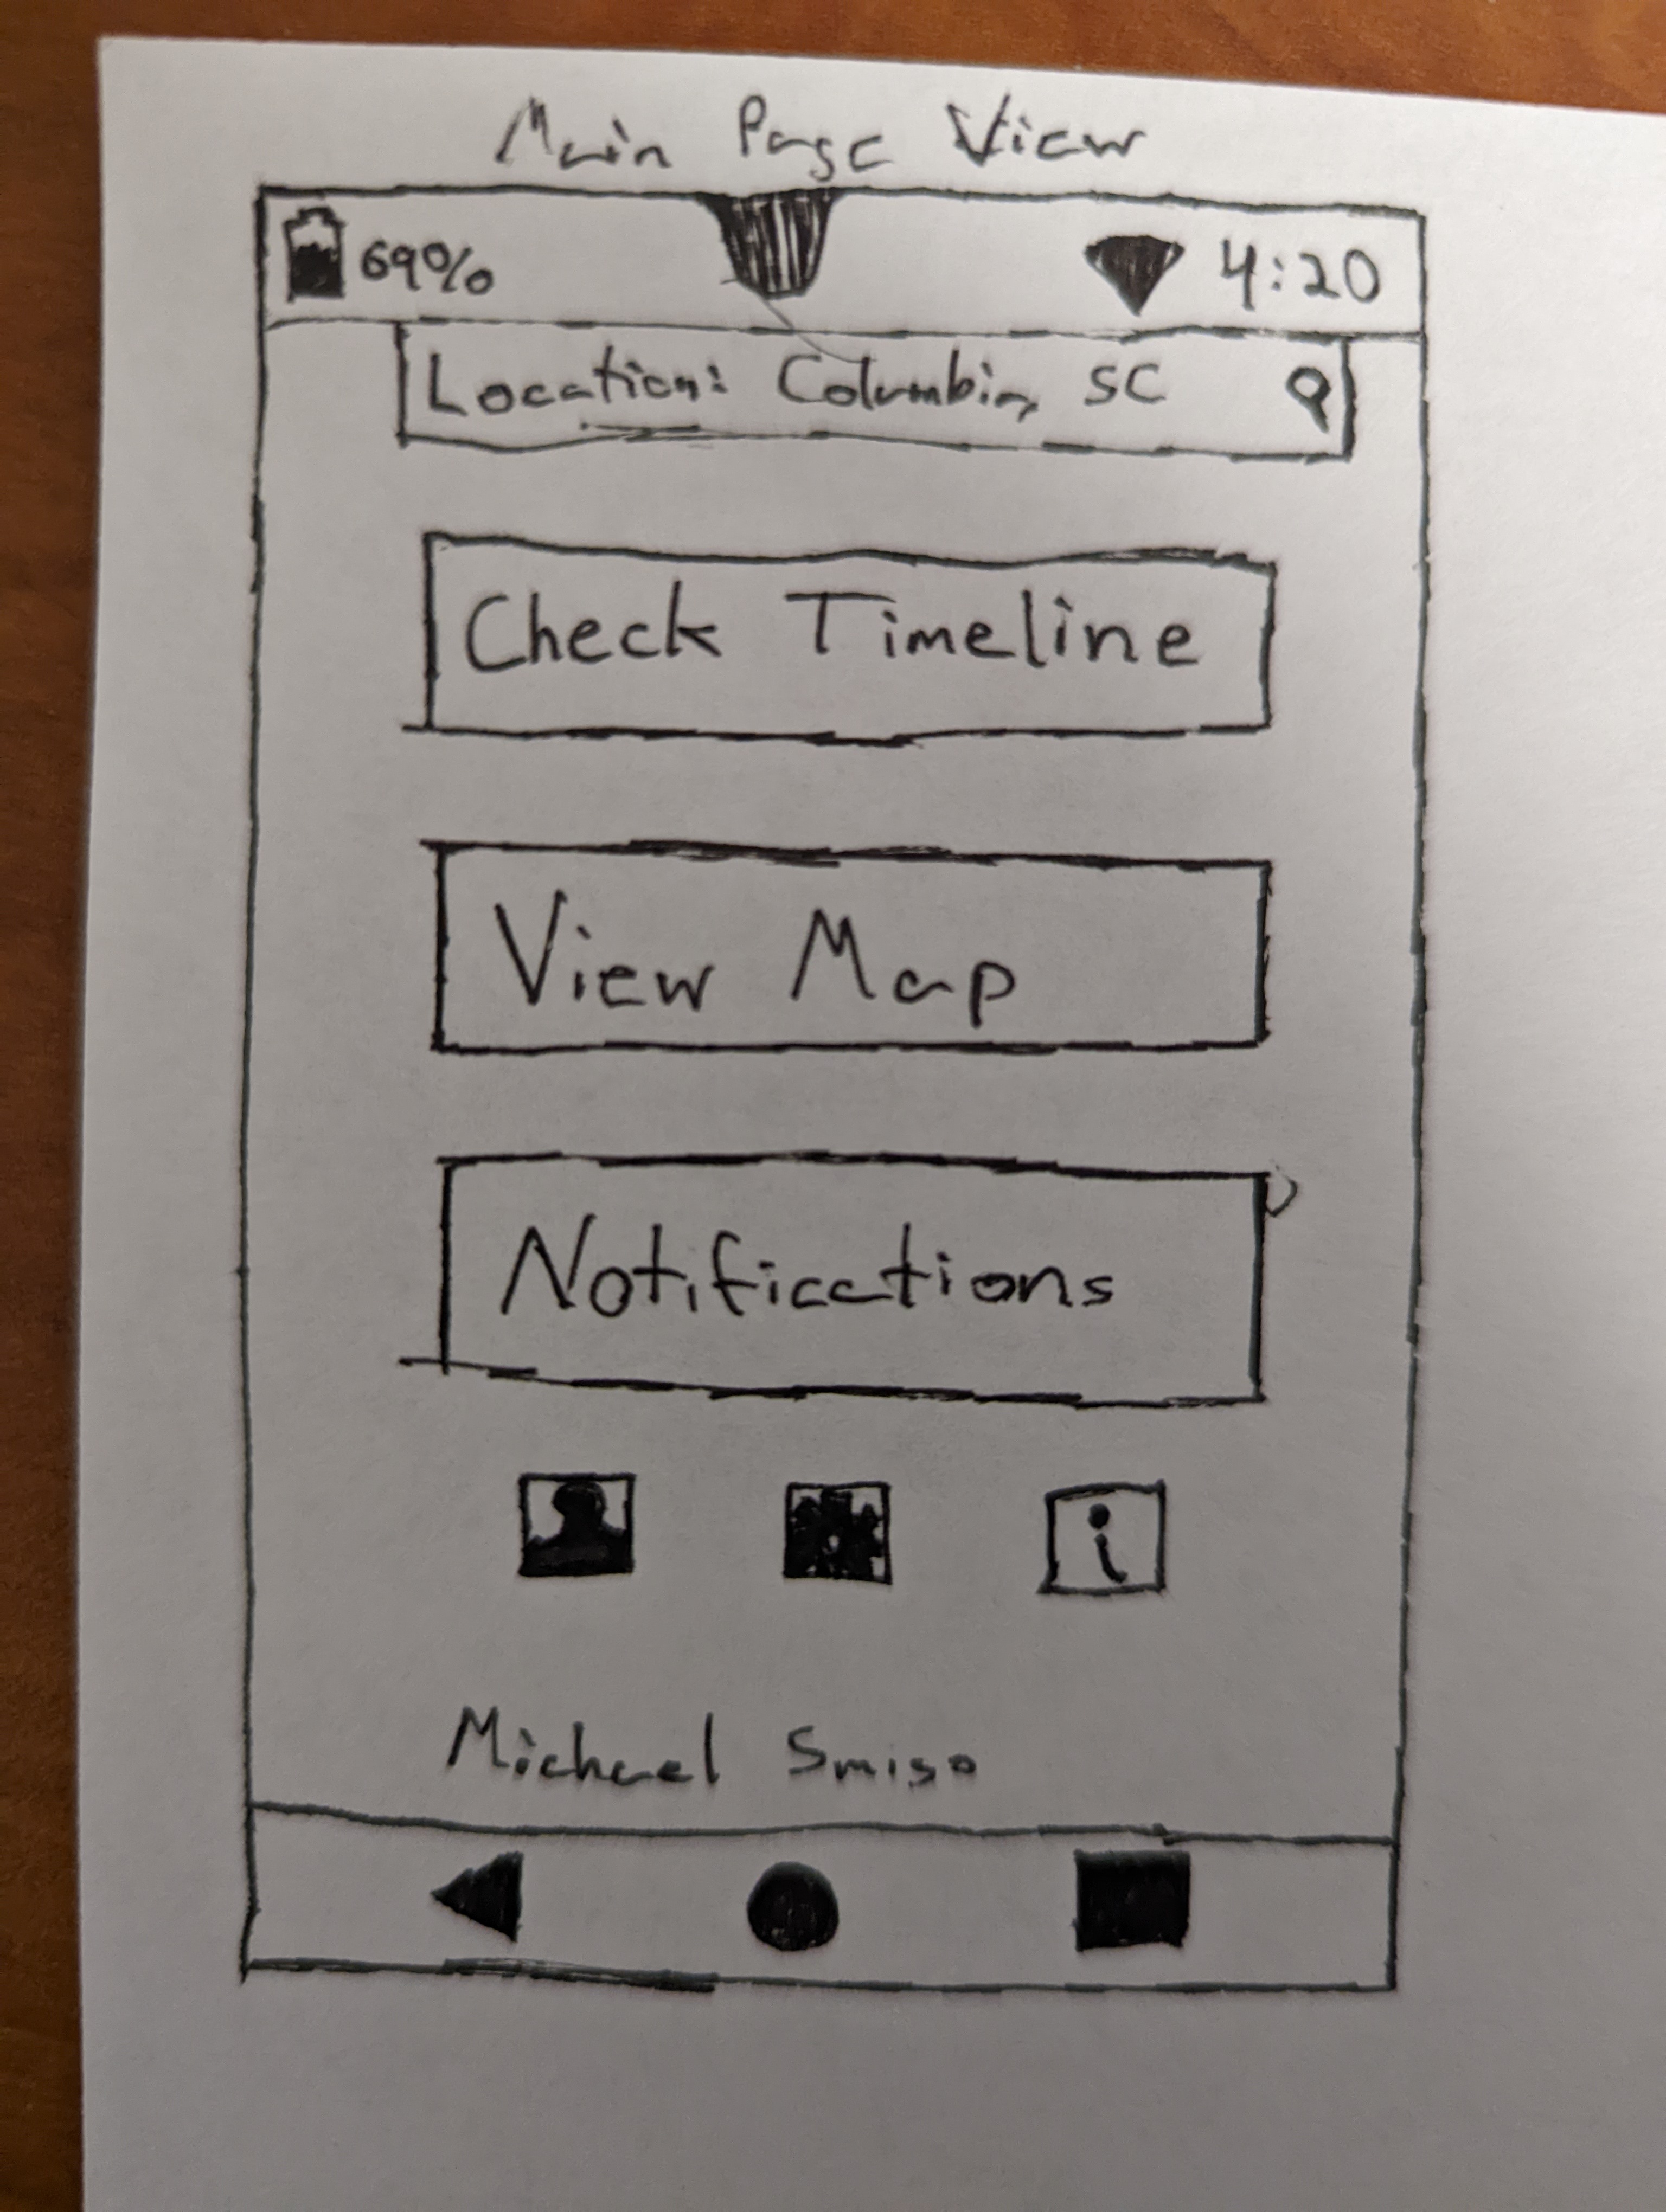 Main Page View
69% 4:20
Location: Columbia, SC
Check Timeline
View Map
Notifications
i
Michael Smiso